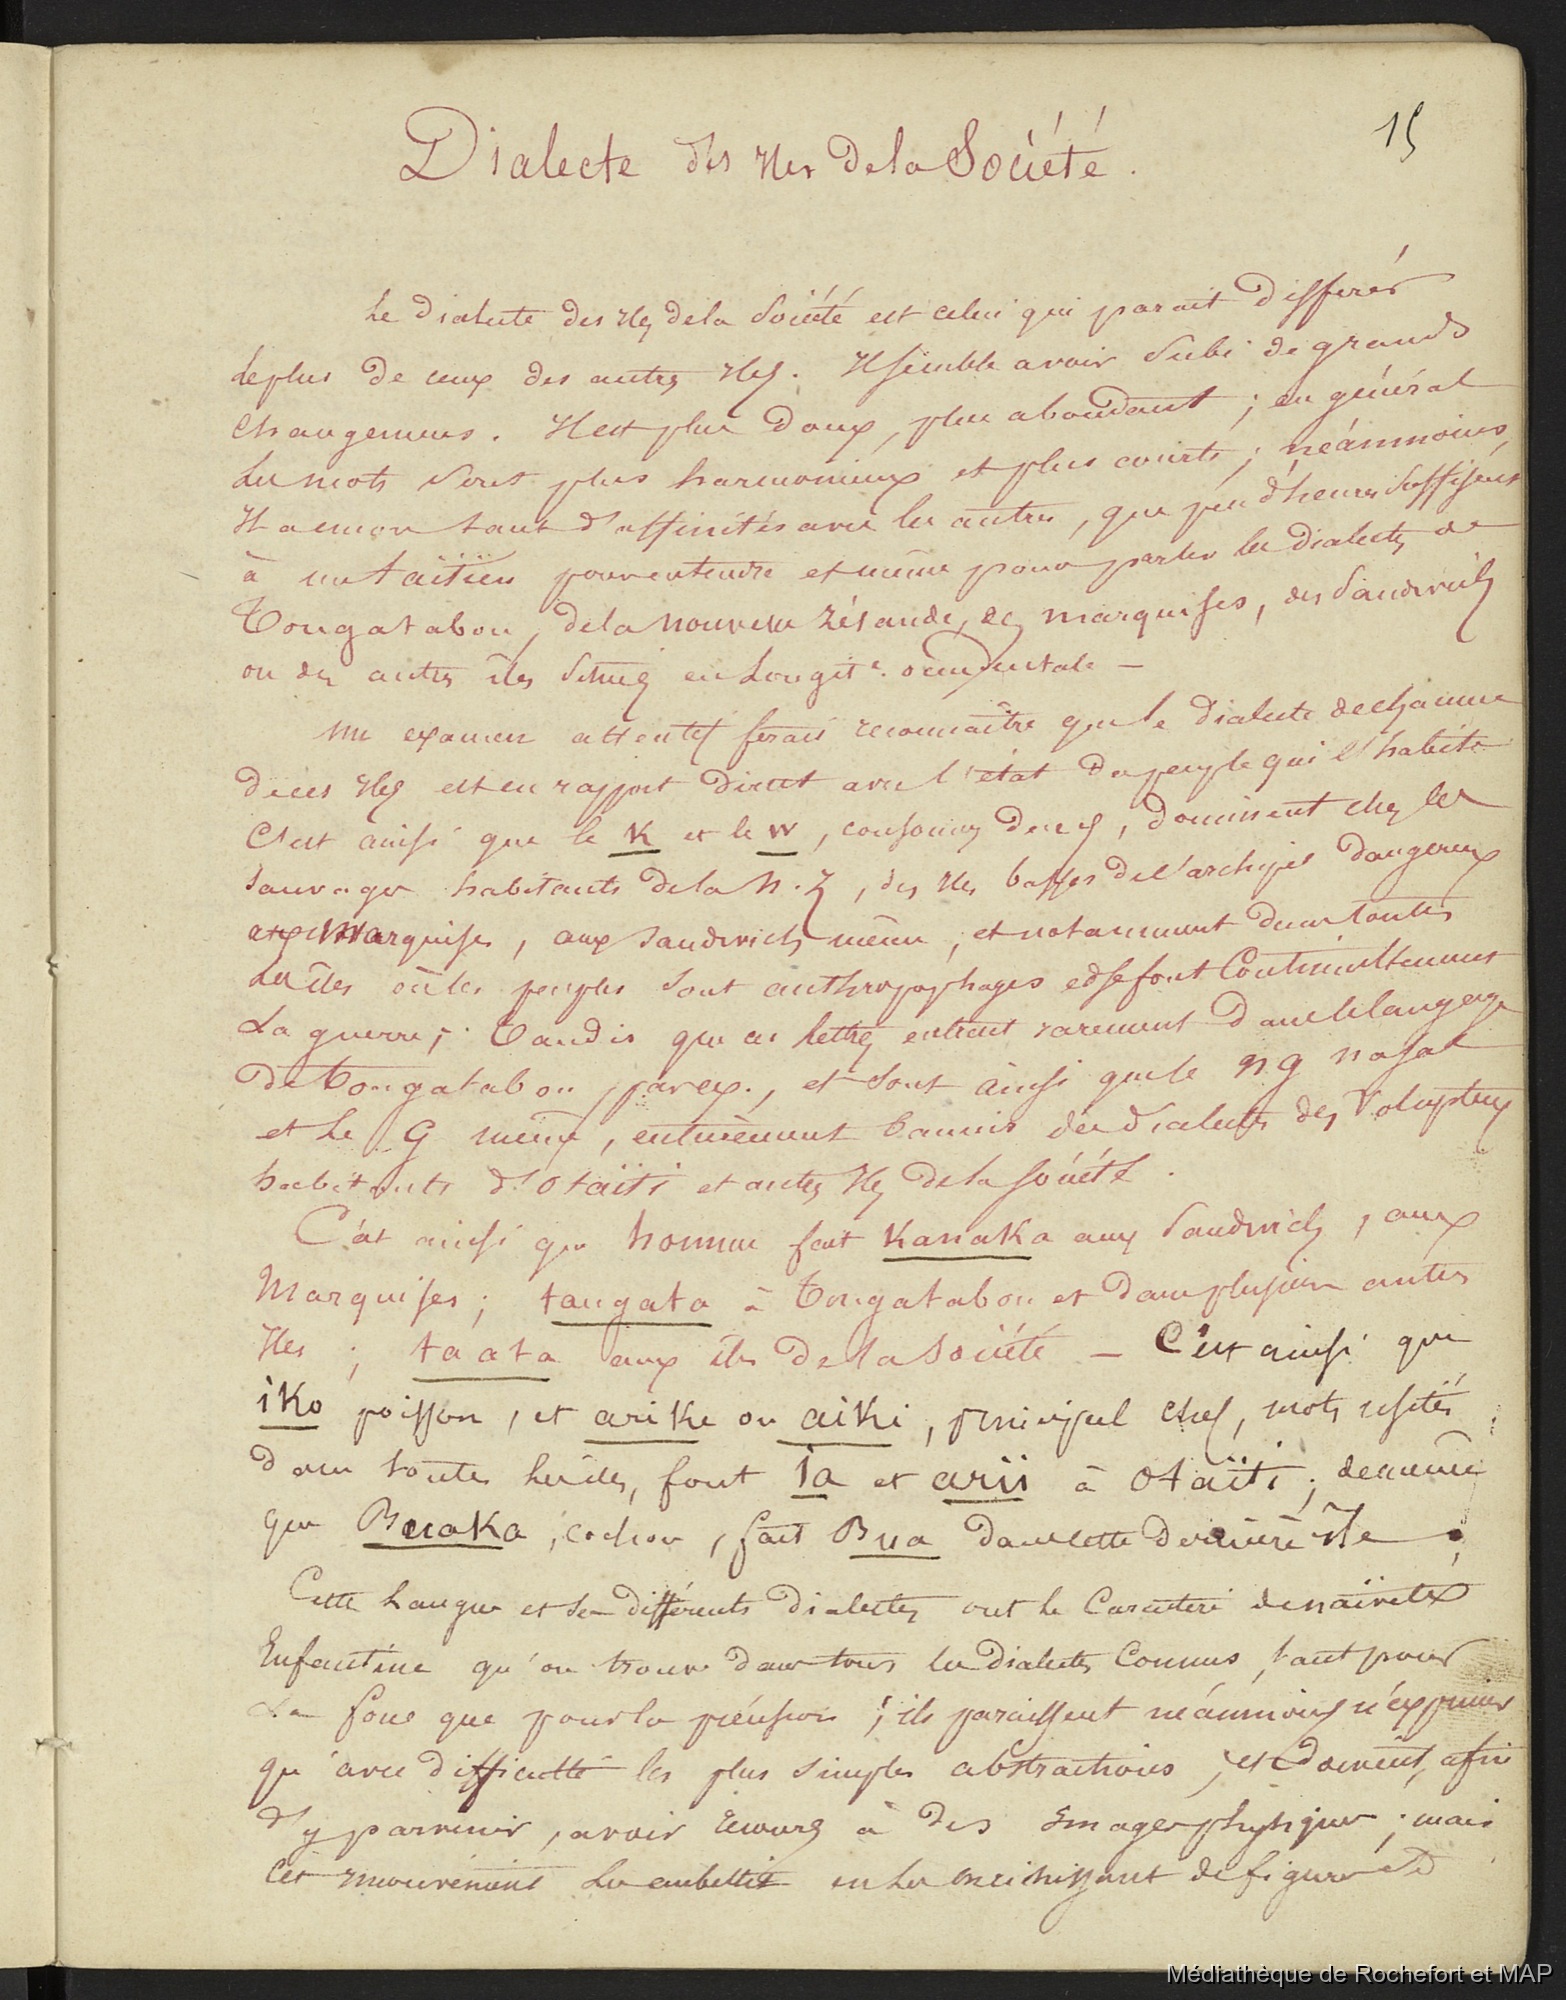 15
Dialecte des Iles de la Société.
Le dialecte des Iles de la Société est celui qui parait différer
le plus de ceux des autres Iles. Il semble avoir subi de grands
changemens. Il est plus doux, plus abondant ; en général
les mots sont plus harmonieux et plus courts ; néanmoins,
Il a encore tant d'affinités avec les autres, que peu d'heures suffisent
à un taïtien pour entendre et même pour parler les dialectes de
Tongatabou, de la nouvelle Zélande, des marquises, des Sandwich
ou des autres îles situées en Longit^e. occidentale —
Un examen attentif ferait reconnaître que le dialecte de chacune
de ces Iles est en rapport direct avec l'état du peuple qui l'habite
C'est ainsi que le K et le W, consonnes dures, dominent chez les
sauvages habitants de la N. Z, des Iles basses de l'archipel dangereux
aux Marquises, aux Sandwich même, et notamment dans toutes
les îles où les peuples sont anthropophages et se font continuellement
la guerre ; Tandis que ces lettres entrent rarement dans le langage
de Tongatabou, par ex., et sont ainsi que le ng nasal
et le G même, entièrement bannis des dialectes des voluptueux
habitants d'Otaïti et autres Iles de la Société.
C'est ainsi que homme fait Kanaka aux Sandwich, aux
Marquises ; tangata à Tongatabou et dans plusieurs autres
Iles ; taata aux îles de la Société — C'est ainsi que
iKo poisson, et ariKe ou aiKi, principal chef, mots usités
dans toutes les îles, font ia et arii à Otaïti ; de même
que BuaKa, cochon, fait Bua dans cette dernière île.
Cette langue et ses différents dialectes ont le caractère de naïveté
Enfantine qu'on trouve dans tous les dialectes connus, tant pour
le fond que pour la ; ils paraissent néanmoins n'exprimer
qu'avec difficulté les plus simples abstractions, et doivent, afin
d'y parvenir, avoir recours à des images physiques ; mais
cet les embellit en les enrichissant de figures et
Médiathèque de Rochefort et MAP